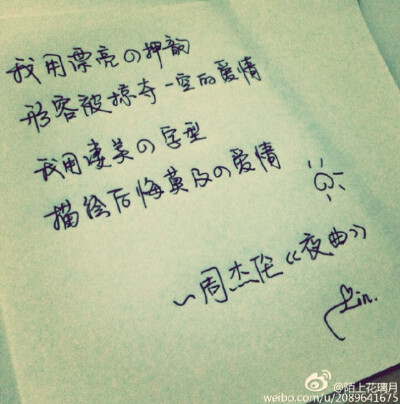 我用漂亮の押韵
形容被掠夺一空的爱情
我用凄美の字型
描绘后悔莫及の爱情
~周杰伦《夜曲》
Lin.
@陌上花璃月
weibo.com/u/2089641675